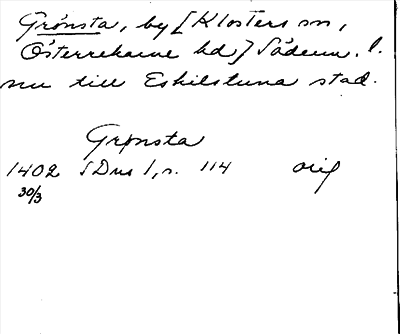 Grönsta, by [Klosters sn,
Österrekarne hd] Söderm. l.
nu till Eskilstuna stad.
Grønsta
1402 SDns 1, s. 114 orig
30/3